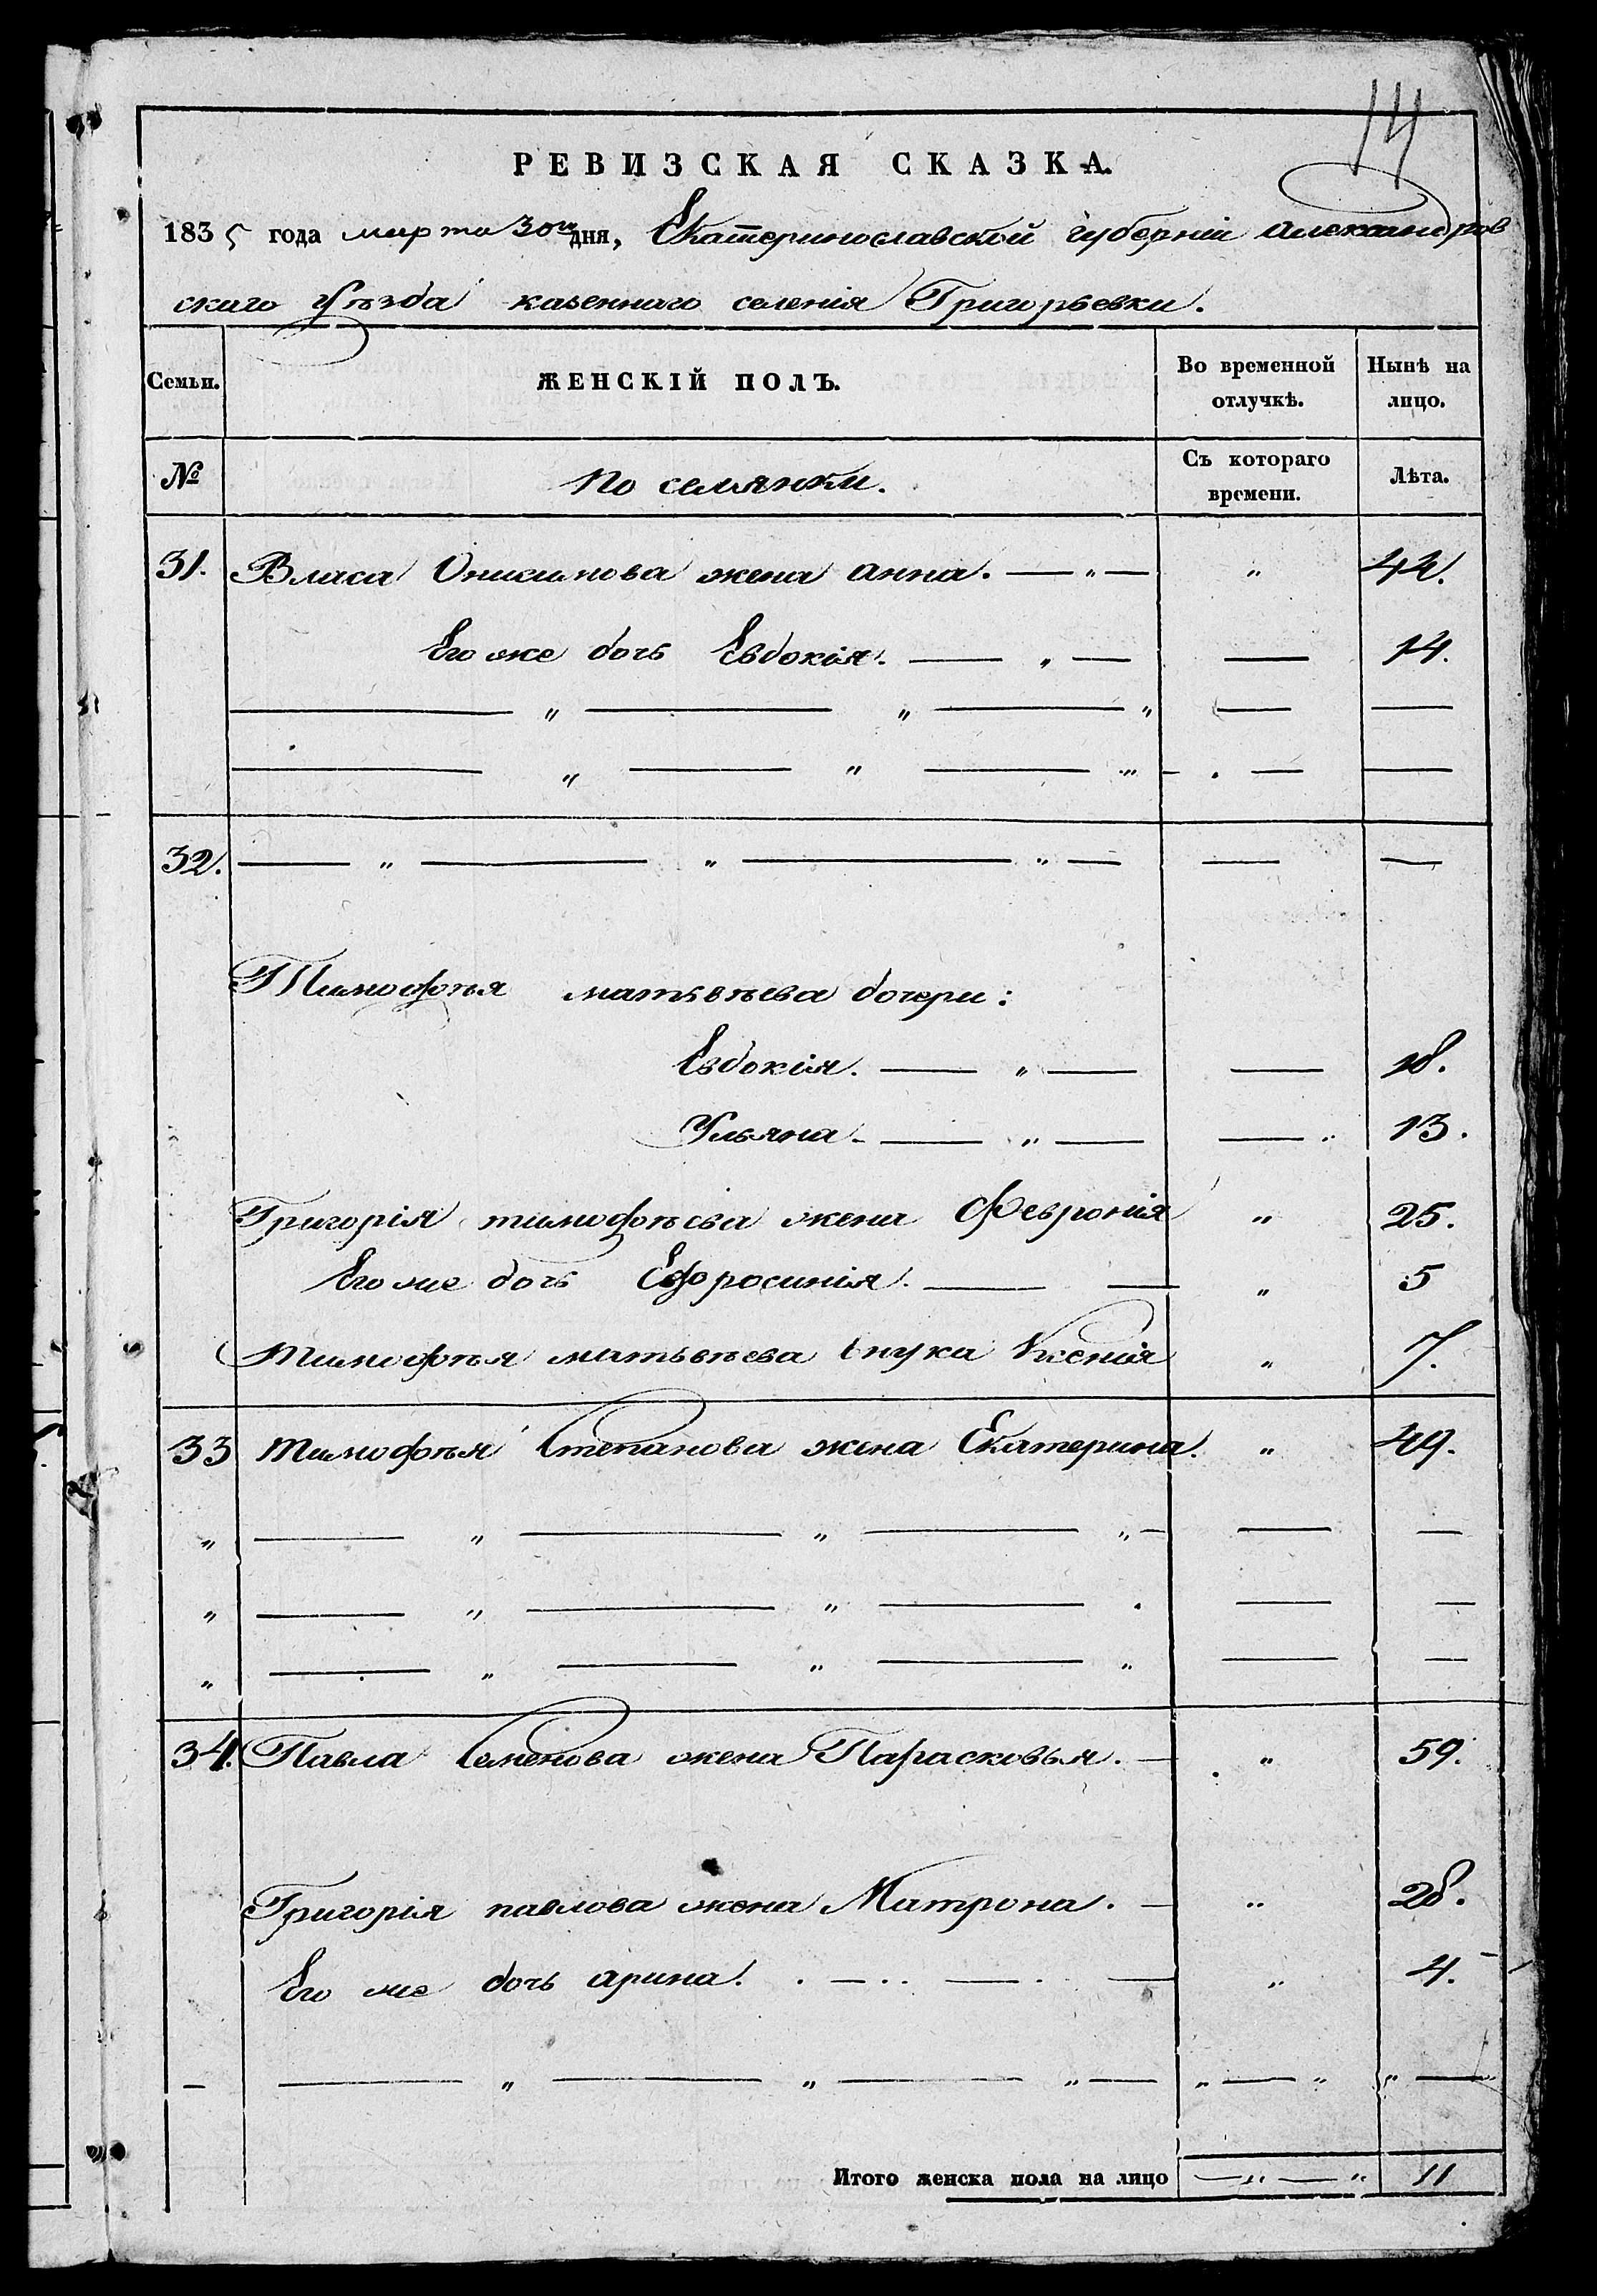 14
РЕВИЗСКАЯ СКАЗКА.
1835 года марта 30го дня, Екатеринославской губерніи Александров
скаго уѣзда казеннаго селенія Григорьевки.
Семьи. ЖЕНСКІЙ ПОЛЪ. Во временной отлучкѣ. Нынѣ на лицо.
№ Поселянки. Съ котораго времени. Лѣта.
31. Власа Онисимова жена Анна. — „ — „ 42.
Его же дочь Евдокія. — „ — — 14.
— „ — „ — „ — —
— „ — „ — „ — —
32. — „ — „ — „ — — —
Тимофѣя Матвѣева дочери:
Евдокія. — „ — — 18.
Ульяна. — „ — — „ 13.
Григорія Тимофѣева жена Февронія „ 25.
Его же дочь Ефросинія. — — „ 5
Тимофѣя Матьвѣева внука Ксенія „ 7.
33 Тимофѣя Степанова жена Екатерина. „ 49.
„ — „ — „ — „ — — —
„ — „ — „ — . — —
„ — „ — „ — „ — —
34. Павла Семенова жена Парасковья. — „ 59.
Григорія Павлова жена Матрона. — „ 28.
Его же дочь Арина. — — — „ 4.
— — „ — „ — „ — „ — „ „ —
Итого женска пола на лицо — „ — „ 11